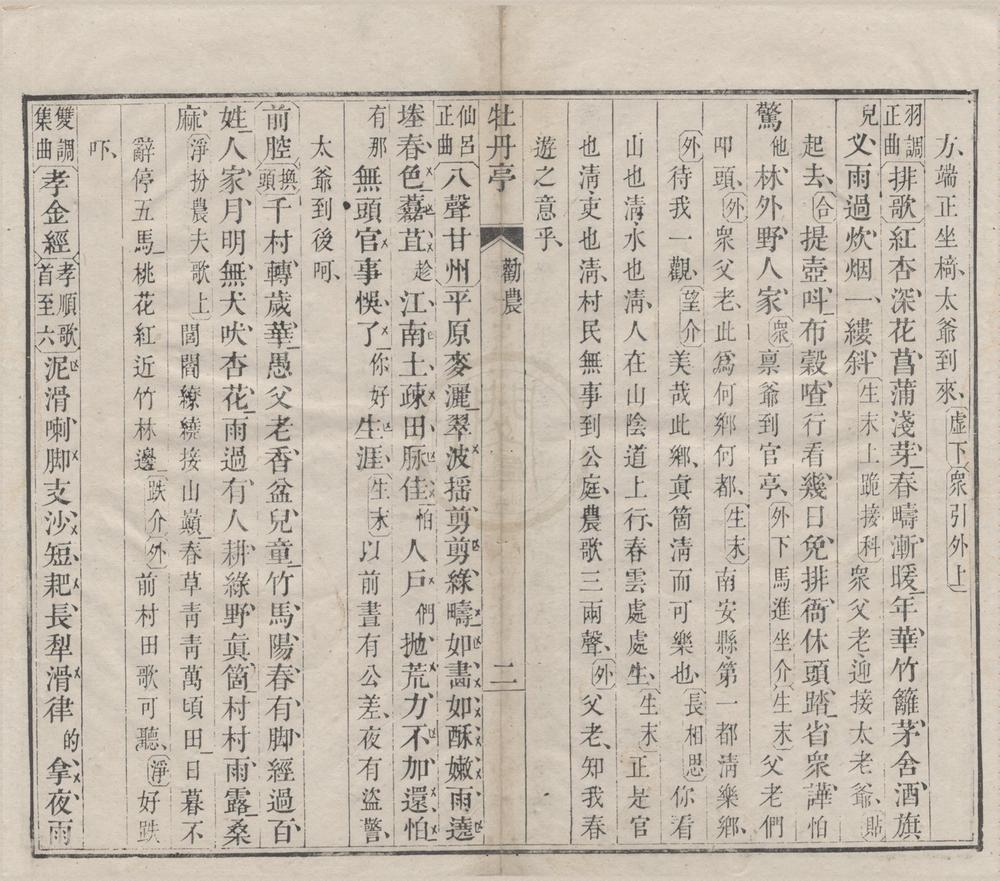 方、端正坐椅、太爺到來、虛下衆引外上
羽調正曲排歌紅杏深花菖蒲淺芽春疇漸暖年華竹籬茅舍酒旗
兒叉雨過炊烟一縷斜生末上跪接科衆父老迎接太老爺、貼
起去、合提壺叫布穀喳行看幾日免排衙休頭踏省衆譁怕
驚他林外野人家衆禀爺到官亭、外下馬進坐介生末父老們
叩頭、外衆父老、此爲何鄉何都、生末南安縣第一都淸樂鄉、
外待我一觀、望介美哉此鄉、眞箇淸而可樂也、長相思你看
山也淸水也淸、人在山陰道上行、春雲處處生、生末正是官
也淸、吏也淸、村民無事到公庭、農歌三兩聲、外父老、知我春
遊之意乎、
牡丹亭 勸農 二
仙呂正曲八聲甘州平原麥灑翠波摇剪剪綠疇如畫如酥嫩雨遶
塍春色䕢苴趁江南土疎田脉佳怕人戶們抛荒力不加還怕
有那無頭官事悞了你好生涯生末以前晝有公差、夜有盜警、
太爺到後呵、
前腔換頭千村轉歲華愚父老香盆兒童竹馬陽春有脚經過百
姓人家月明無犬吠杏花雨過有人耕綠野眞箇村村雨露桑
麻、淨扮農夫歌上閭閻繚繞接山巔春草靑靑萬頃田日暮不
辭停五馬桃花紅近竹林邊跌介外前村田歌可聽、淨好跌
吓、
雙調集曲孝金經孝順歌首至六泥滑喇脚支沙短耙長犁滑律的拿夜雨